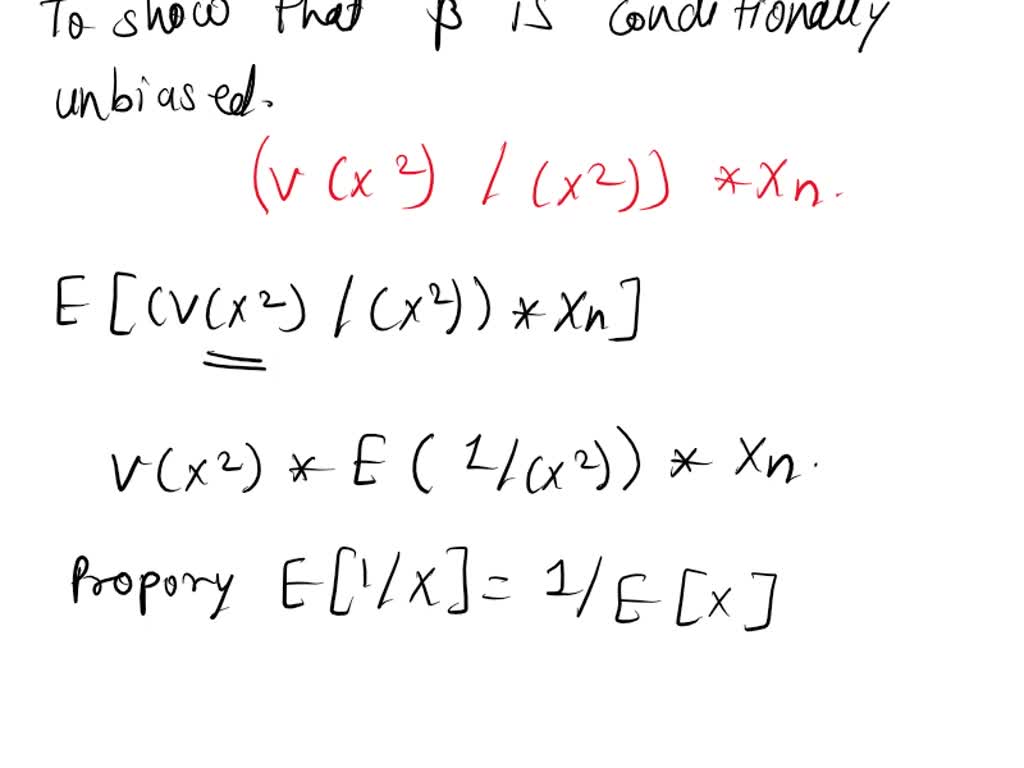 To show that β is conditionally
unbiased.
(v (x²) / (x²)) * Xn.
E [(v(x²) / (x²)) * Xn]
v(x²) * E ( 1/(x²)) * Xn.
Propory E[1/X] = 1/E[x]